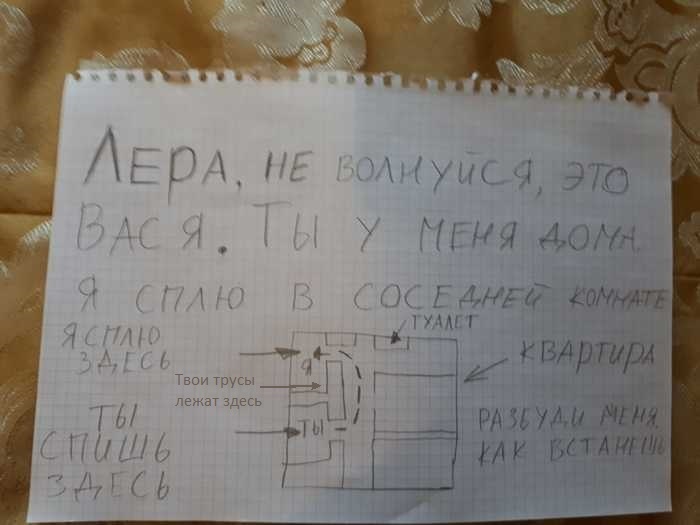 ЛЕРА, НЕ ВОЛНУЙСЯ, ЭТО
ВАСЯ. ТЫ У МЕНЯ ДОМА.
Я СПЛЮ В СОСЕДНЕЙ КОМНАТЕ
Я СПЛЮ
ЗДЕСЬ
ТУАЛЕТ
Я
КВАРТИРА
Твои трусы
лежат здесь
ТЫ
СПИШЬ
ЗДЕСЬ
ТЫ
РАЗБУДИ МЕНЯ,
КАК ВСТАНЕШЬ